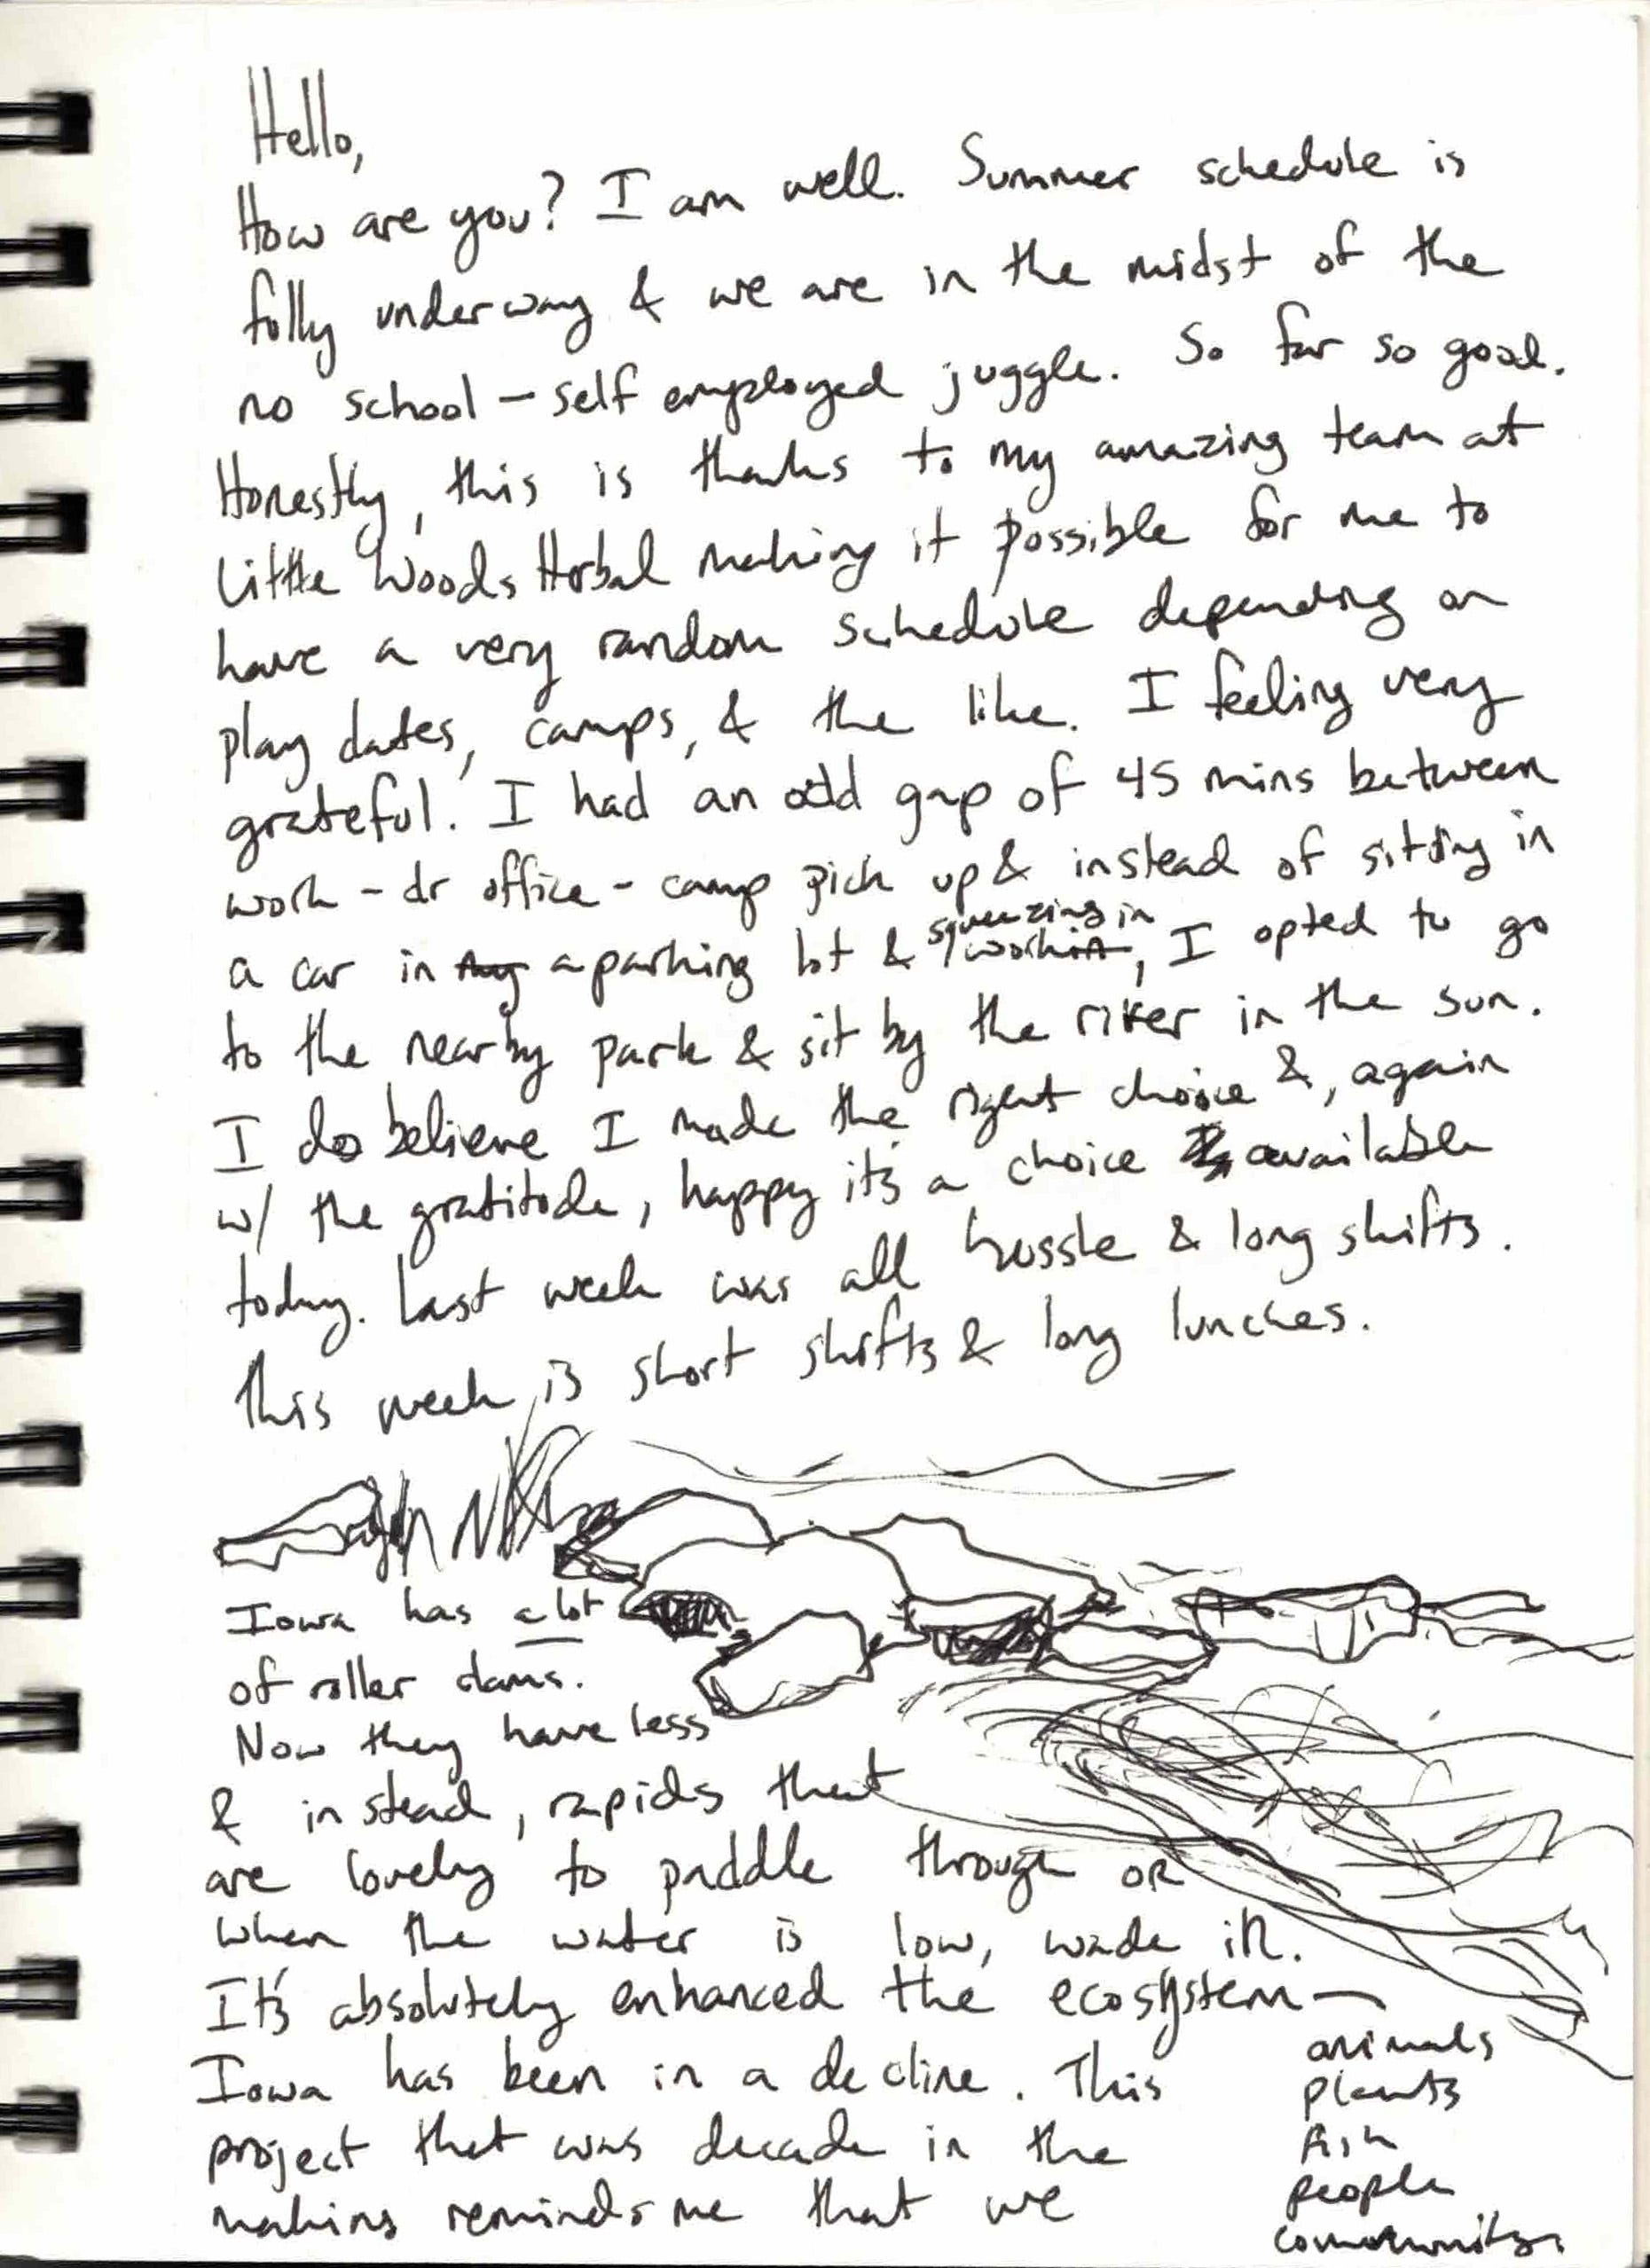 Hello,
How are you? I am well. Summer schedule is
fully underway & we are in the midst of the
no school - self employed juggle. So far so good.
Honestly, this is thanks to my amazing team at
Little Woods Herbal making it possible for me to
have a very random schedule depending on
play dates, camps, & the like. I feeling very
grateful. I had an odd gap of 45 mins between
work - dr office - camp pick up & instead of sitting in
a car in my a parking lot & squeezing in work in, I opted to go
to the nearby park & sit by the river in the sun.
I do believe I made the right choice &, again
w/ the gratitude, happy it's a choice available
today. Last week was all hussle & long shifts.
This week is short shifts & long lunches.
Iowa has a lot
of roller dams.
Now they have less
& instead, rapids that
are lovely to paddle through OR
when the water is low, wade in.
It's absolutely enhanced the ecosystem —
Iowa has been in a decline. This
project that was decade in the
making reminds me that we
animals
plants
fish
people
community